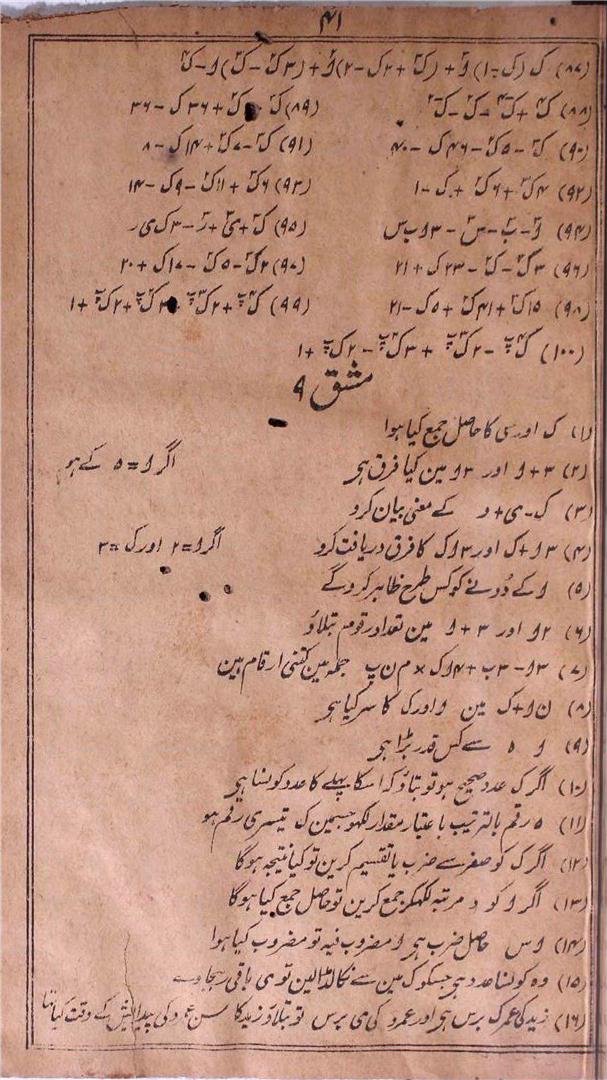 ۴۱
(۸۷) ک (ک-۱) و۲ + (ک۲+۲ک-۲) و + (۳ک۲-ک۳) و-ک۴
(۹۰) ک۳-۵ک۲-۴۶ک-۴۰ (۹۱) ک۳-۷ک۲+۱۴ک-۸
(۹۲) ۴ک۳+۶ک۲+ک-۱ (۹۳) ۶ک۳+۱۱ک۲-۹ک-۱۴
(۹۶) ۳ک۳-ک۲-۲۳ک+۲۱ (۹۷) ۲ک۳-۵ک۲-۱۷ک+۲۰
(۹۸) ۱۵ک۳+۴۱ک۲+۵ک-۲۱
(۱۰۰) ک۴پ-۲ک۳پ+۳ک۲پ-۲ک پ+۱
مشق ۹
(۱) ک اور سی کا حاصل جمع کیا ہوا
(۲) ۳+و اور ۳و مین کیا فرق ہی اگر و=۵ کے ہو
(۳) ک-ی+و کے معنی بیان کرو
(۴) ۳و+ک اور ۳وک کا فرق دریافت کرو اگر و=۲ اور ک=۳
(۵) و کے دُونے کو کس طرح ظاہر کروگے
(۶) ۲و اور ۳+و مین تعداد رقوم بتلاؤ
(۷) ۳و-۳ب+۴وک×م ن پ جملہ مین کتنی ارقام ہین
(۸) ن و+ک مین و اور ک کا سر کیا ہی
(۹) و ۵ سے کس قدر بڑا ہی
(۱۰) اگر ک عدد صحیح ہو تو بتاؤ کہ اسکا پہلے کا عدد کونسا ہی
(۱۱) ۵ رقم بالترتیب باعتبار مقدار لکھو جسمین ک تیسری رقم ہو
(۱۲) اگر ک کو صفر سے ضرب یا تقسیم کرین تو کیا نتیجہ ہوگا
(۱۳) اگر و کو د مرتبہ لکھکر جمع کرین تو حاصل جمع کیا ہوگا
(۱۴) و س حاصل ضرب ہی و مضروب فیہ تو مضروب کیا ہوا
(۱۵) وہ کونسا عدد ہی جسکو ک مین سے نکالڈالین تو ی باقی رہجاوے
(۱۶) زید کی عمر ک برس ہی اور عمرو کی ی برس تو بتلاؤ زید کا سن عمرو کی پیدایش کے وقت کیا تہا